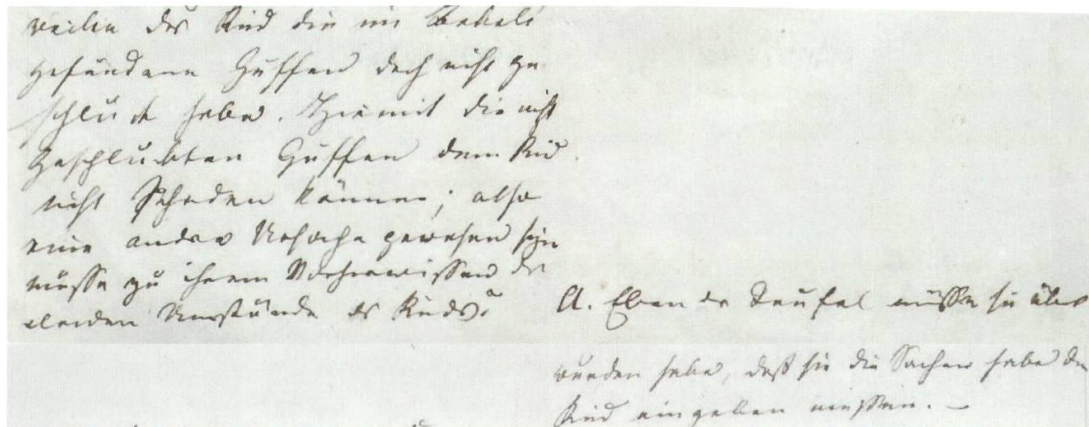 weilen das Kind die im Bekeli
gefundene Guffen doch nicht ge
schlukt habe. Hiemit die nicht
geschlukten Guffen dem Kind
nicht Schaden können; also
eine andere Ursache gewesen seyn
müsse zu ihrem Vorherwissen der
elenden Umstände des Kinds?
A. Eben der Teufel müsse sie über
wunden habe, daß sie die Sachen habe dem
Kind eingeben müssen. –